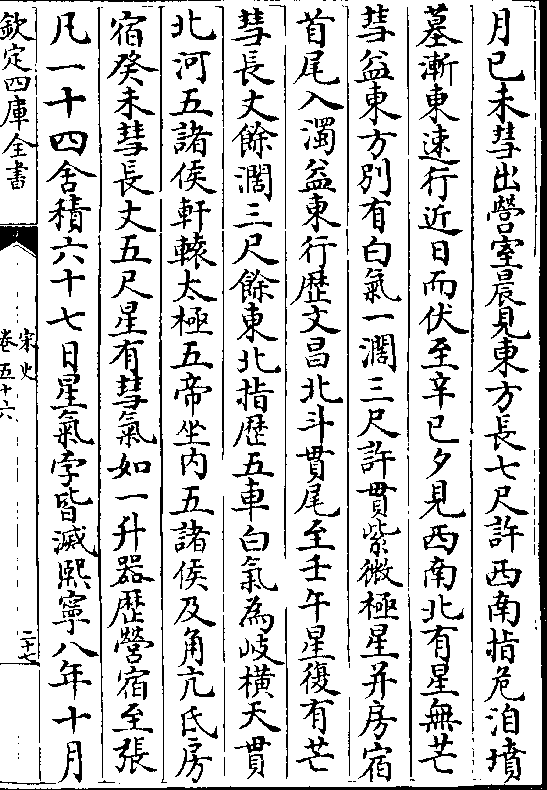 月已未彗出營室晨見東方長七尺許西南指危洎墳
墓漸東速行近日而伏至辛巳夕見西南北有星無芒
彗益東方别有白氣一濶三尺許貫紫微極星并房宿
首尾入濁益東行歴文昌北斗貫尾至壬午星復有芒
彗長丈餘濶三尺餘東北指歴五車白氣為岐横天貫
北河五諸侯軒轅太極五帝坐内五諸侯及角亢氐房
宿癸未彗長丈五尺星有彗氣如一升器歴營宿至張
凡一十四舍積六十七日星氣孛皆滅熙寧八年十月
欽定四庫全書
宋史
卷五十六
二十七